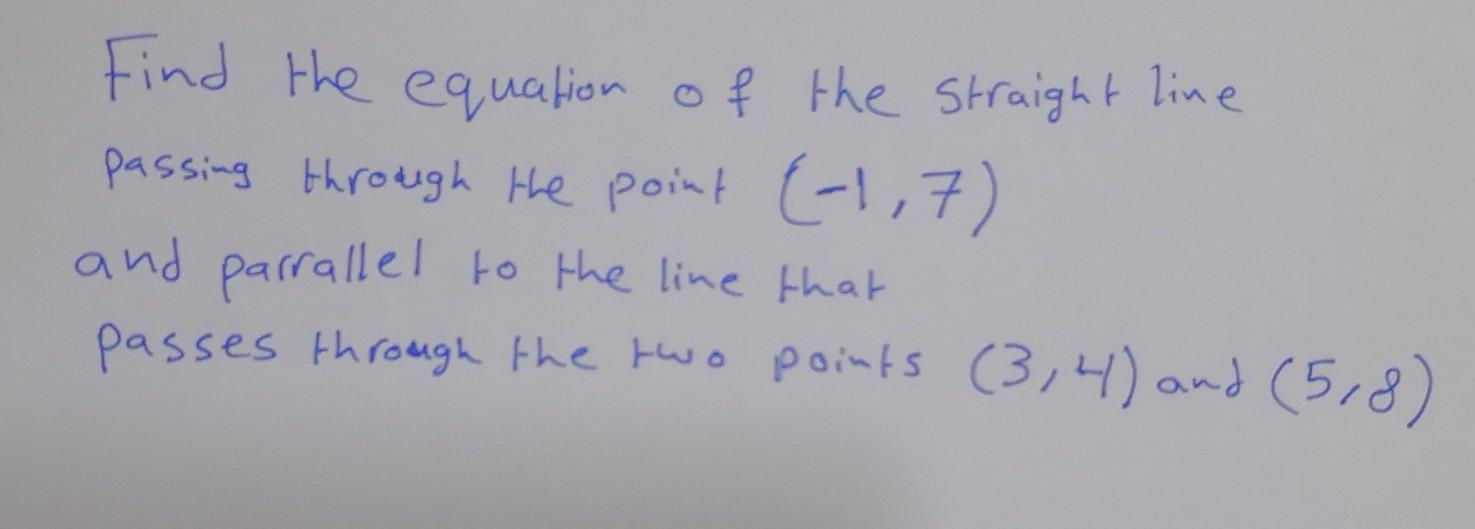 Find the equation of the straight line
passing through the point (-1,7)
and parrallel to the line that
passes through the two points (3,4) and (5,8)